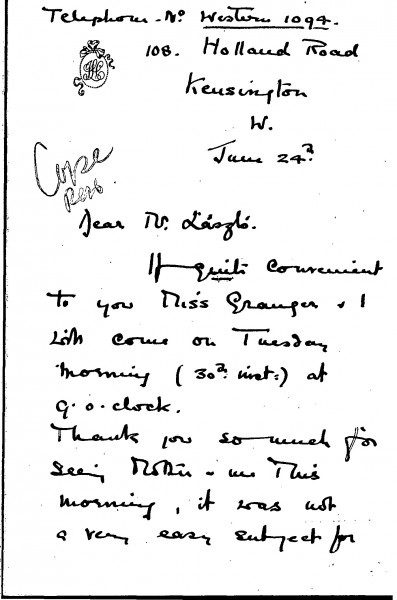 Telephone - No Western 1094.
108. Holland Road
Kensington
W.
June 24th
Dear Mr. László.
If quite convenient
to you Miss Granger & I
will come on Tuesday
morning (30th inst:) at
9.o.clock.
Thank you so much for
seeing Mother & me This
morning, it was not
a very easy subject for